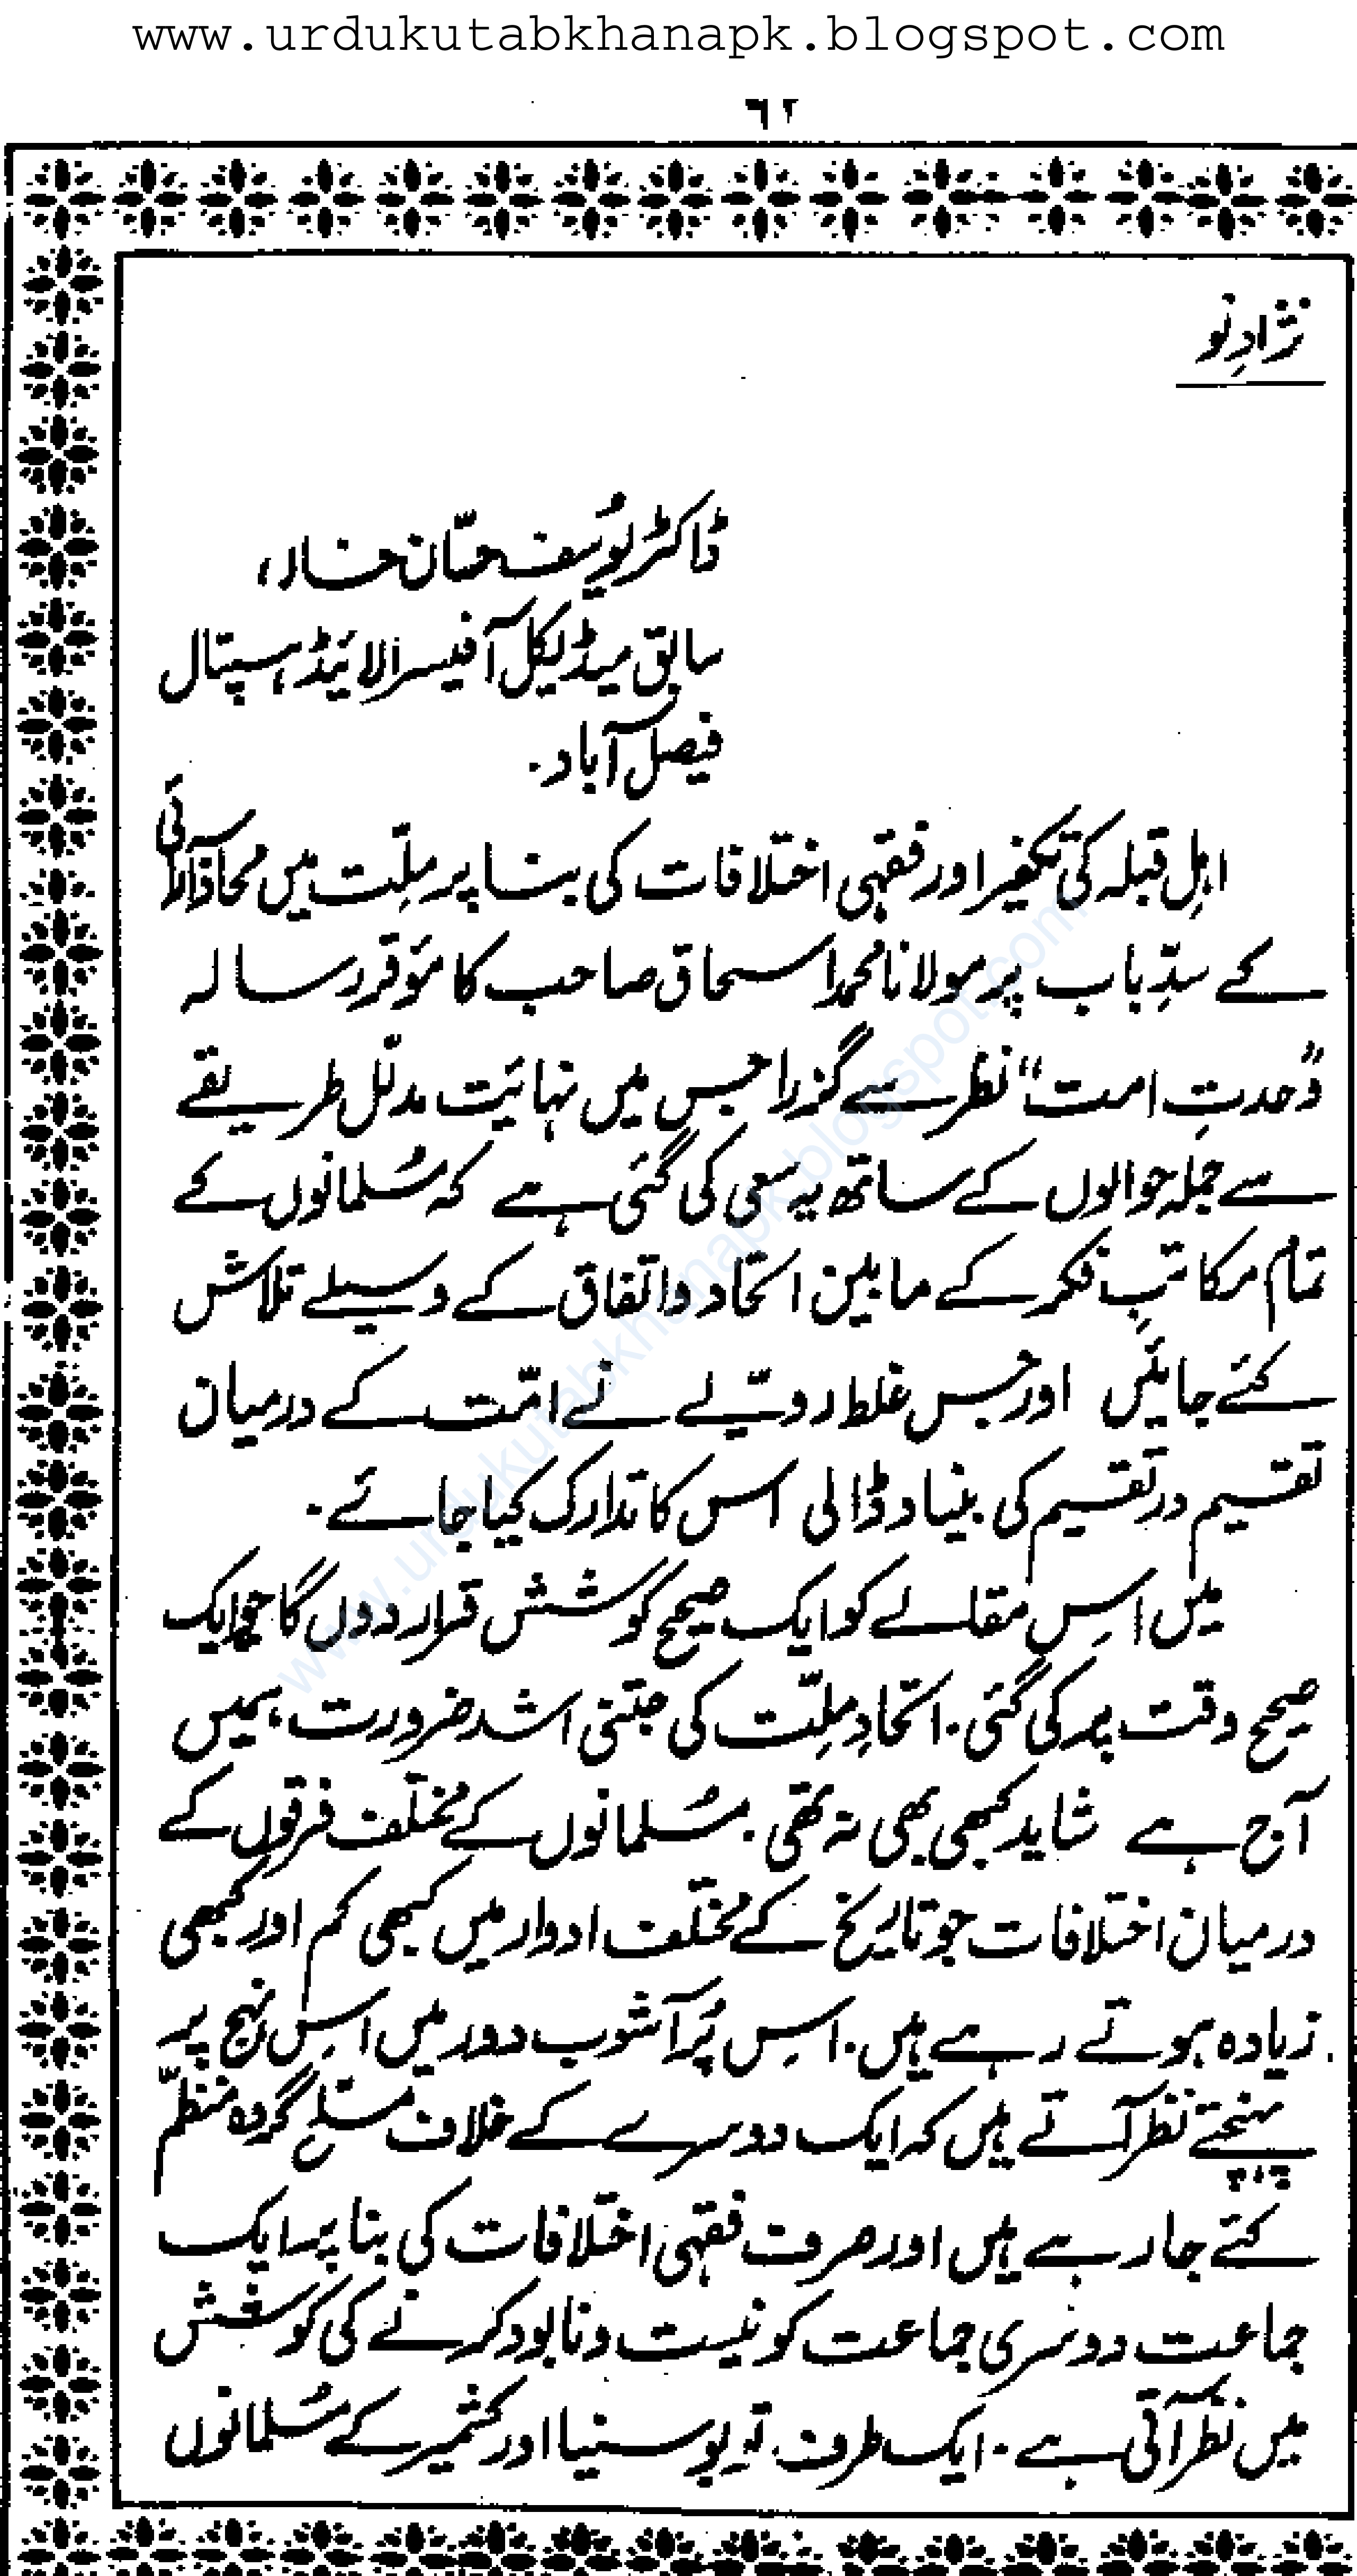 www.urdukutabkhanapk.blogspot.com
٦٢
نژادِنو
ڈاکٹر یوُسف حسّان خاں،
سابق میڈیکل آفیسر الائیڈ ہسپتال
فیصل آباد۔
اہلِ قبلہ کی تکفیر اور فقہی اختلافات کی بنا پر ملِّت میں محاذ آرائی
کے سدِّباب پر مولانا محمد اسحاق صاحب کا مؤقر رسالہ
”وحدتِ امت“ نظر سے گزرا جس میں نہائت مدلّل طریقے
سے جملہ حوالوں کے ساتھ یہ سعی کی گئی ہے کہ مُسلمانوں کے
تمام مکاتبِ فکر کے مابین اتحاد و اتفاق کے وسیلے تلاش
کئے جائیں اور جس غلط روّیے نے امّت کے درمیان
تقسیم در تقسیم کی بنیاد ڈالی اس کا تدارک کیا جائے۔
میں اسِ مقالے کو ایک صحیح کوشش قرار دوں گا جو ایک
صحیح وقت پر کی گئی۔ اتحادِ ملِّت کی جتنی اشد ضرورت ہمیں
آج ہے شاید کبھی بھی نہ تھی۔ مُسلمانوں کے مُختلف فرقوں کے
درمیان اختلافات جو تاریخ کے مُختلف ادوار میں کبھی کم اور کبھی
زیادہ ہوتے رہے ہیں۔ اسِ پُر آشوب دور میں اسِ نہج پر
پہنچتے نظر آتے ہیں کہ ایک دوسرے کے خلاف مسلح گروہ منظّم
کئے جا رہے ہیں اور صرف فقہی اختلافات کی بنا پر ایک
جماعت دوسری جماعت کو نیست و نابود کرنے کی کوشش
میں نظر آتی ہے۔ ایک طرف تو بوسنیا اور کشمیر کے مُسلمانوں
www.urdukutabkhanapk.blogspot.com